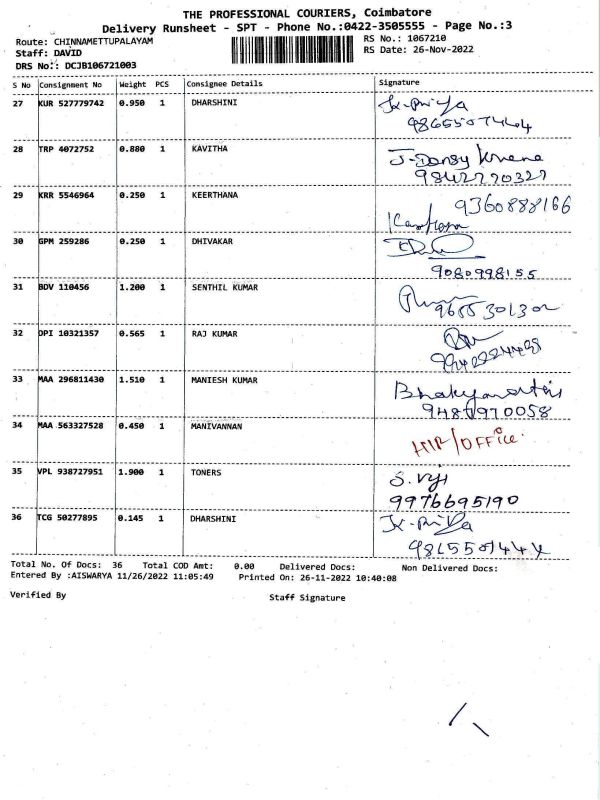 THE PROFESSIONAL COURIERS, Coimbatore
Delivery Runsheet - SPT - Phone No.:0422-3505555 - Page No.:3
Route: CHINNAMETTUPALAYAM
RS No.: 1067210
Staff: DAVID
RS Date: 26-Nov-2022
DRS No.: DCJB106721003
S No Consignment No Weight PCS Consignee Details Signature
27 KUR 527779742 0.950 1 DHARSHINI K-Priya
28 TRP 4072752 0.880 1 KAVITHA
9842770327
29 KRR 5546964 0.250 1 KEERTHANA 9360888166
30 GPM 259286 0.250 1 DHIVAKAR
9080998155
31 BDV 110456 1.200 1 SENTHIL KUMAR
32 DPI 10321357 0.565 1 RAJ KUMAR
33 MAA 296811430 1.510 1 MANIESH KUMAR
34 MAA 563327528 0.450 1 MANIVANNAN
/OFFICE.
35 VPL 938727951 1.900 1 TONERS S. Viji
9976695190
36 TCG 50277895 0.145 1 DHARSHINI K-Priya
Total No. Of Docs: 36 Total COD Amt: 0.00 Delivered Docs: Non Delivered Docs:
Entered By :AISWARYA 11/26/2022 11:05:49 Printed On: 26-11-2022 10:40:08
Verified By Staff Signature